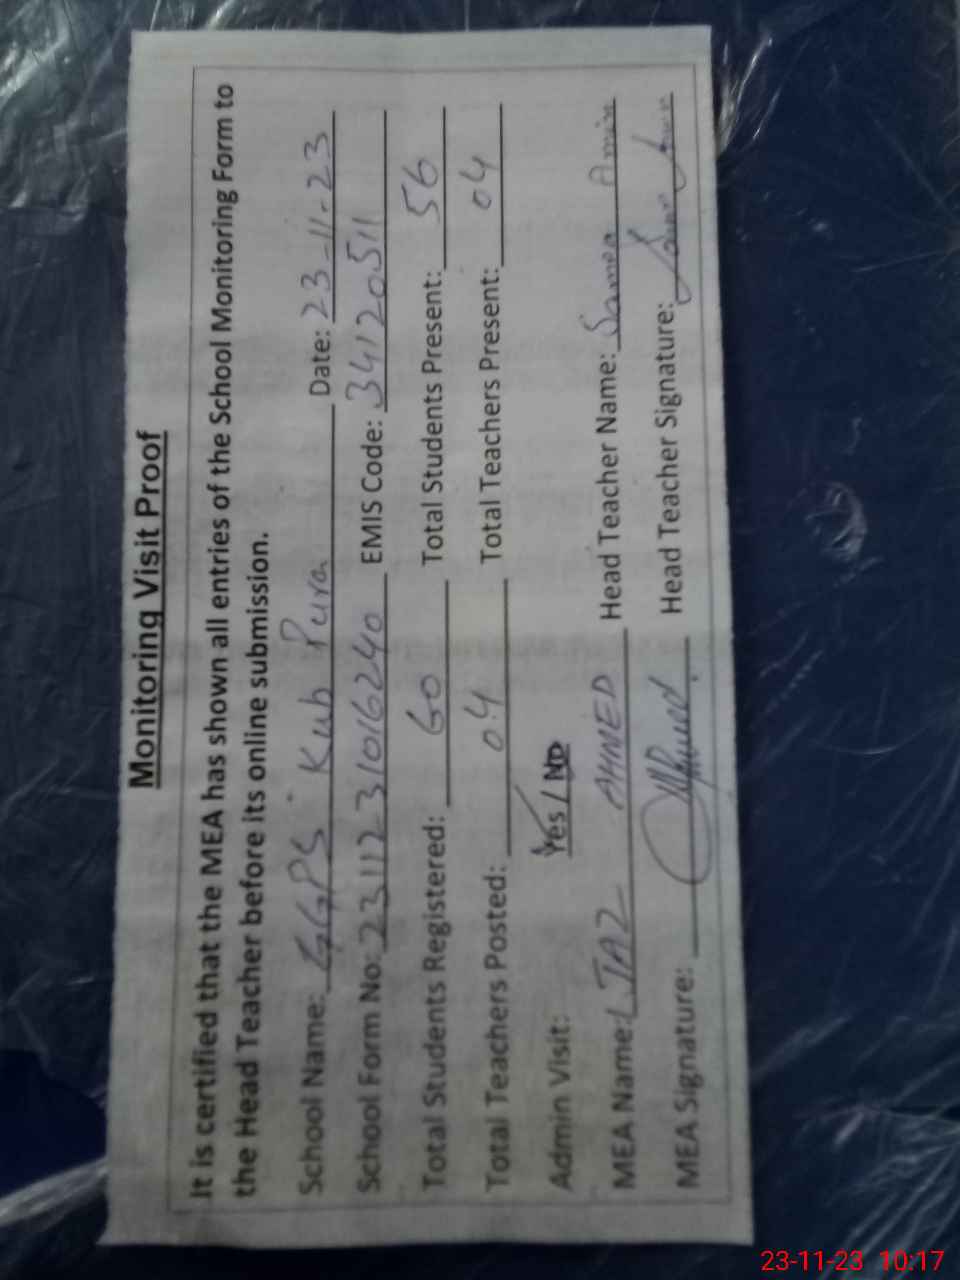 Monitoring Visit Proof
It is certified that the MEA has shown all entries of the School Monitoring Form to
the Head Teacher before its online submission.
School Name: GGPS Kub Pura Date: 23-11-23
School Form No: 2311231016240 EMIS Code: 34120511
Total Students Registered: 60 Total Students Present: 56
Total Teachers Posted: 04 Total Teachers Present: 04
Admin Visit: Yes / No
MEA Name: IJAZ AHMED Head Teacher Name: Samea Amin
MEA Signature: Head Teacher Signature:
23-11-23 10:17